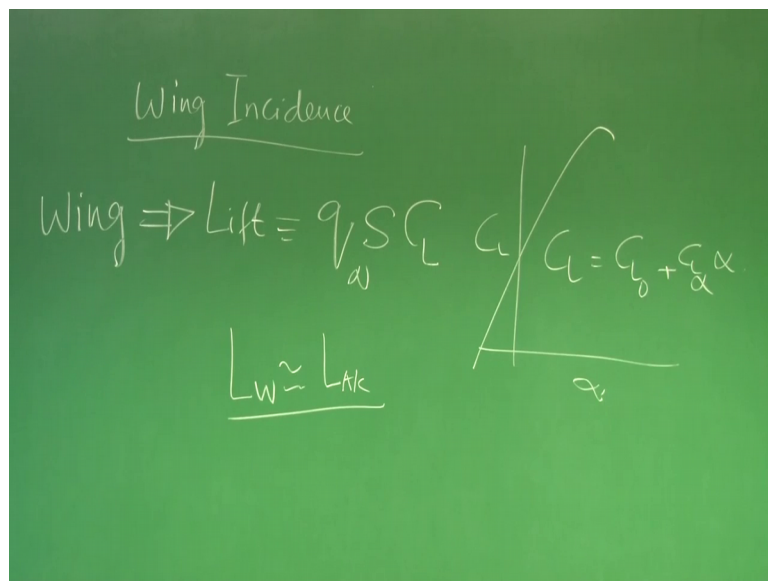 Wing Incidence
Wing ⇒ Lift ≡ q∞ S C_L
C_L
C_L = C_L₀ + C_Lα α
α
L_W ≃ L_A/c